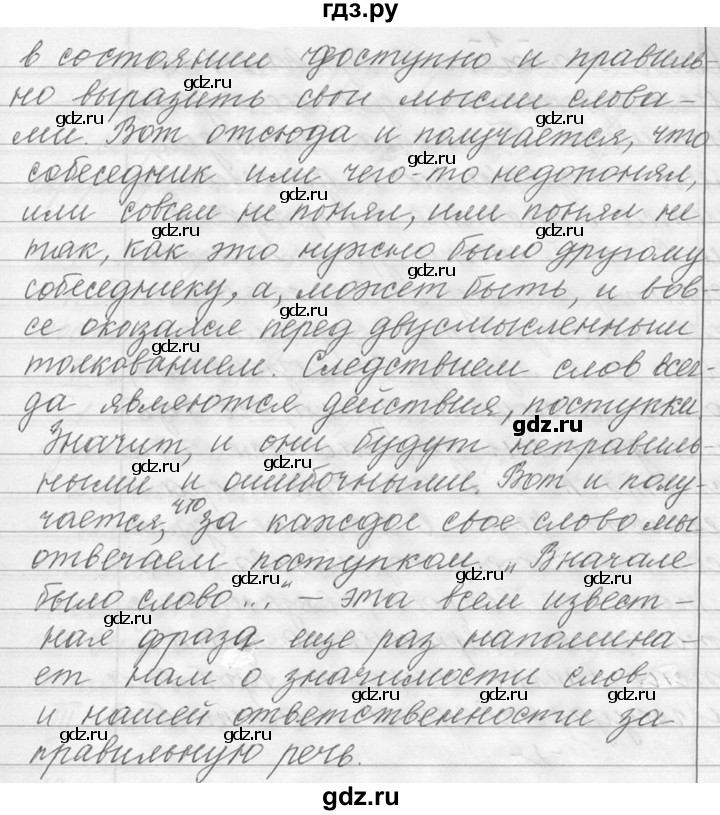 гдз.ру
в состоянии доступно и правиль-
но выразить свои мысли слова-
ми. Вот отсюда и получается, что
собеседник или чего-то недопонял,
или совсем не понял, или понял не
так, как это нужно было другому
собеседнику, а, может быть, и вов-
се оказался перед двусмысленным
толкованием. Следствием слов всег-
да являются действия, поступки
Значит, и они будут неправиль-
ными и ошибочными. Вот и полу-
чается, что за каждое свое слово мы
отвечаем поступком. „Вначале
было слово..." – эта всем извест-
ная фраза еще раз напомина-
ет нам о значимости слов
и нашей ответственности за
правильную речь.
gdz.ru